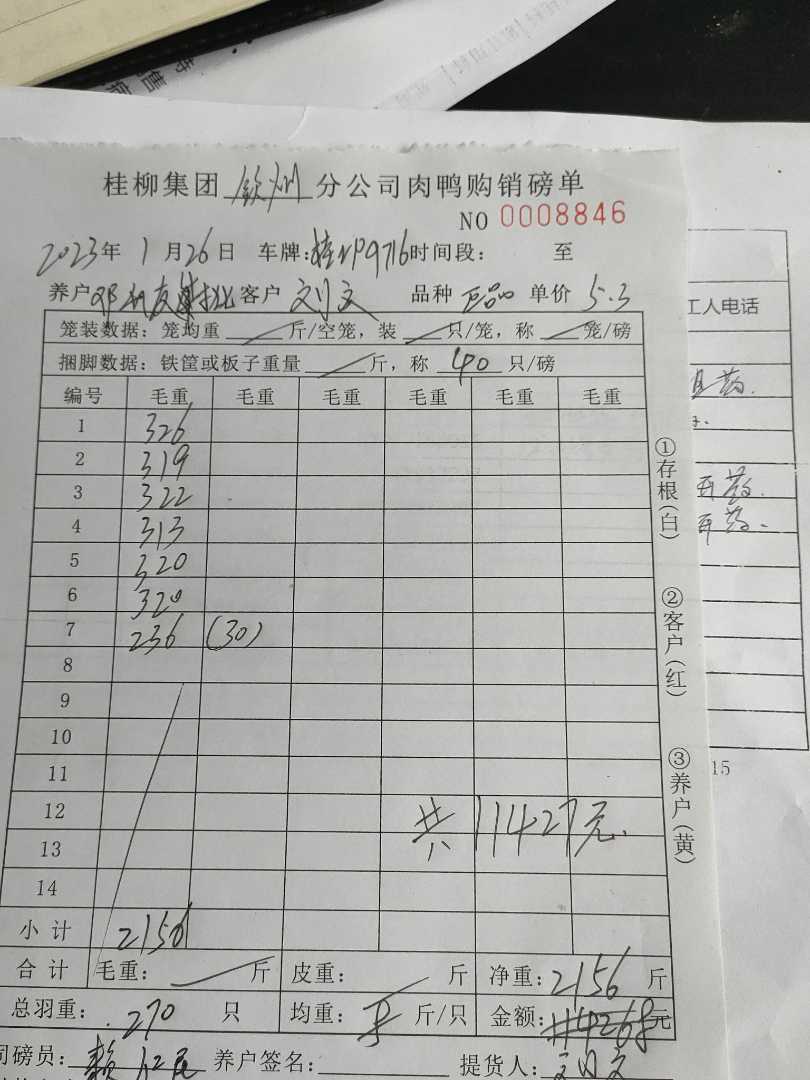 持售
桂柳集团 钦州 分公司肉鸭购销磅单
NO 0008846
2023年 1月26日 车牌: 9716 时间段: 至
养户 客户 刘文 品种 正品 单价 5.3
笼装数据: 笼均重 斤/空笼, 装 只/笼, 称 笼/磅
捆脚数据: 铁筐或板子重量 斤, 称 40 只/磅
编号 毛重 毛重 毛重 毛重 毛重 毛重
1 326
2 319
3 322
4 313
5 320
6 320
7 236 (30)
8
9
10
11
12
13
14
共11427元.
小计 2156
合计 毛重: 斤 皮重: 斤 净重: 2156 斤
总羽重: 270 只 均重: 斤/只 金额: 元
司磅员: 养户签名: 提货人:
①存根(白)
②客户(红)
③养户(黄)
工人电话
15